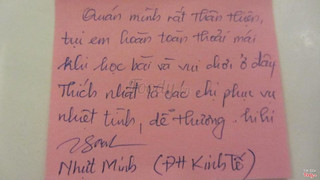 Quán mình rất thân thiện,
tụi em hoàn toàn thoải mái
khi học bài và vui chơi ở đây
Thích nhất là các chị phục vụ
nhiệt tình, dễ thương. hihi
Nhựt Minh (ĐH Kinh Tế)